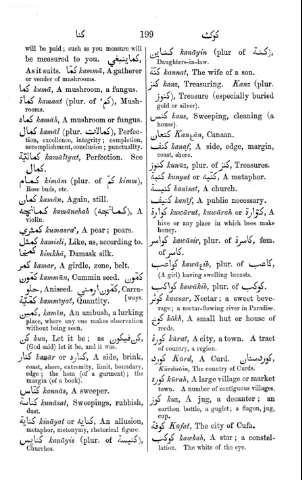 كنا 199 كوكث
will be paid; such as you measure will
be measured to you. كماينبغي
As it suits. كمّا kammá, A gatherer
or vender of mushrooms.
كما kumá, A mushroom, a fungus.
كمأة kamaat (plur. of كم), Mush-
rooms.
كماه kamáh, A mushroom or fungus.
كمال kamál (plur. كمالات), Perfec-
tion, excellence, integrity; completion,
accomplishment, conclusion; punctuality.
كماليّة kamáliyat, Perfection. See
كمال.
كمام kimám (plur. of كم kimu),
Rose buds, etc.
كمان kamán, Again, still.
كمانچه kamánchah (كمانجة) A
violin.
كمثري kumasra, A pear; pears.
كمثل kamisli, Like, as, according to.
كمخا kimkhá, Damask silk.
كمر kamar, A girdle, zone, belt.
كمّون kammún, Cummin seed. كمون
حلو, Aniseed. كمون ارمني, Carra-
كميّة kammiyat, Quantity. (ways.
كمين kamín, An ambush, a lurking
place, where any one makes observation
without being seen.
كن kun, Let it be; as كن فيكون
(God said) let it be, and it was.
كنار kanár or كناره, A side, brink,
coast, shore, extremity, limit, boundary,
edge; the hem (of a garment); the
margin (of a book).
كناس kannás, A sweeper.
كناسة kunásat, Sweepings, rubbish,
dust.
كناية kináyat or كنايه, An allusion,
metaphor, metonymy, rhetorical figure.
كنايس kanáyis (plur. of كنيسة),
Churches.
كناين kanáyin (plur. of كنة),
Daughters-in-law.
كنّة kannat, The wife of a son.
كنز kanz, Treasuring. Kanz (plur.
كنوز), Treasure (especially buried
gold or silver).
كنس kans, Sweeping, cleaning (a
house).
كنعان Kanȧán, Canaan.
كنف kanaf, A side, edge, margin,
coast, shore.
كنوز kunúz, plur. of كنز, Treasures.
كنية kunyat or كنيه, A metaphor.
كنيسة kanísat, A church.
كنيف kaníf, A public necessary.
كوارة kuwárat, kuwárah or كواره, A
hive or any place in which bees make
honey.
كواسر kawásir, plur. of كاسرة, fem.
of كاسر.
كواعب kawáȧib, plur. of كاعب,
(A girl) having swelling breasts.
كواكب kawákib, plur. of كوكب.
كوثر kausar, Nectar; a sweet beve-
rage; a nectar-flowing river in Paradise.
كوخ kúkh, A small hut or house of
reeds.
كورة kúrat, A city, a town. A tract
of country, a region.
كورد Kúrd, A Curd. كوردستان
Kúrdistán, The country of Curds.
كوره kúrah, A large village or market
town. A number of contiguous villages.
كوز kuz, A jug, a decanter; an
earthen bottle, a guglet; a flagon, jug,
cup.
كوفة Kúfat, The city of Cufa.
كوكب kawkab, A star; a constel-
lation. The white of the eye.